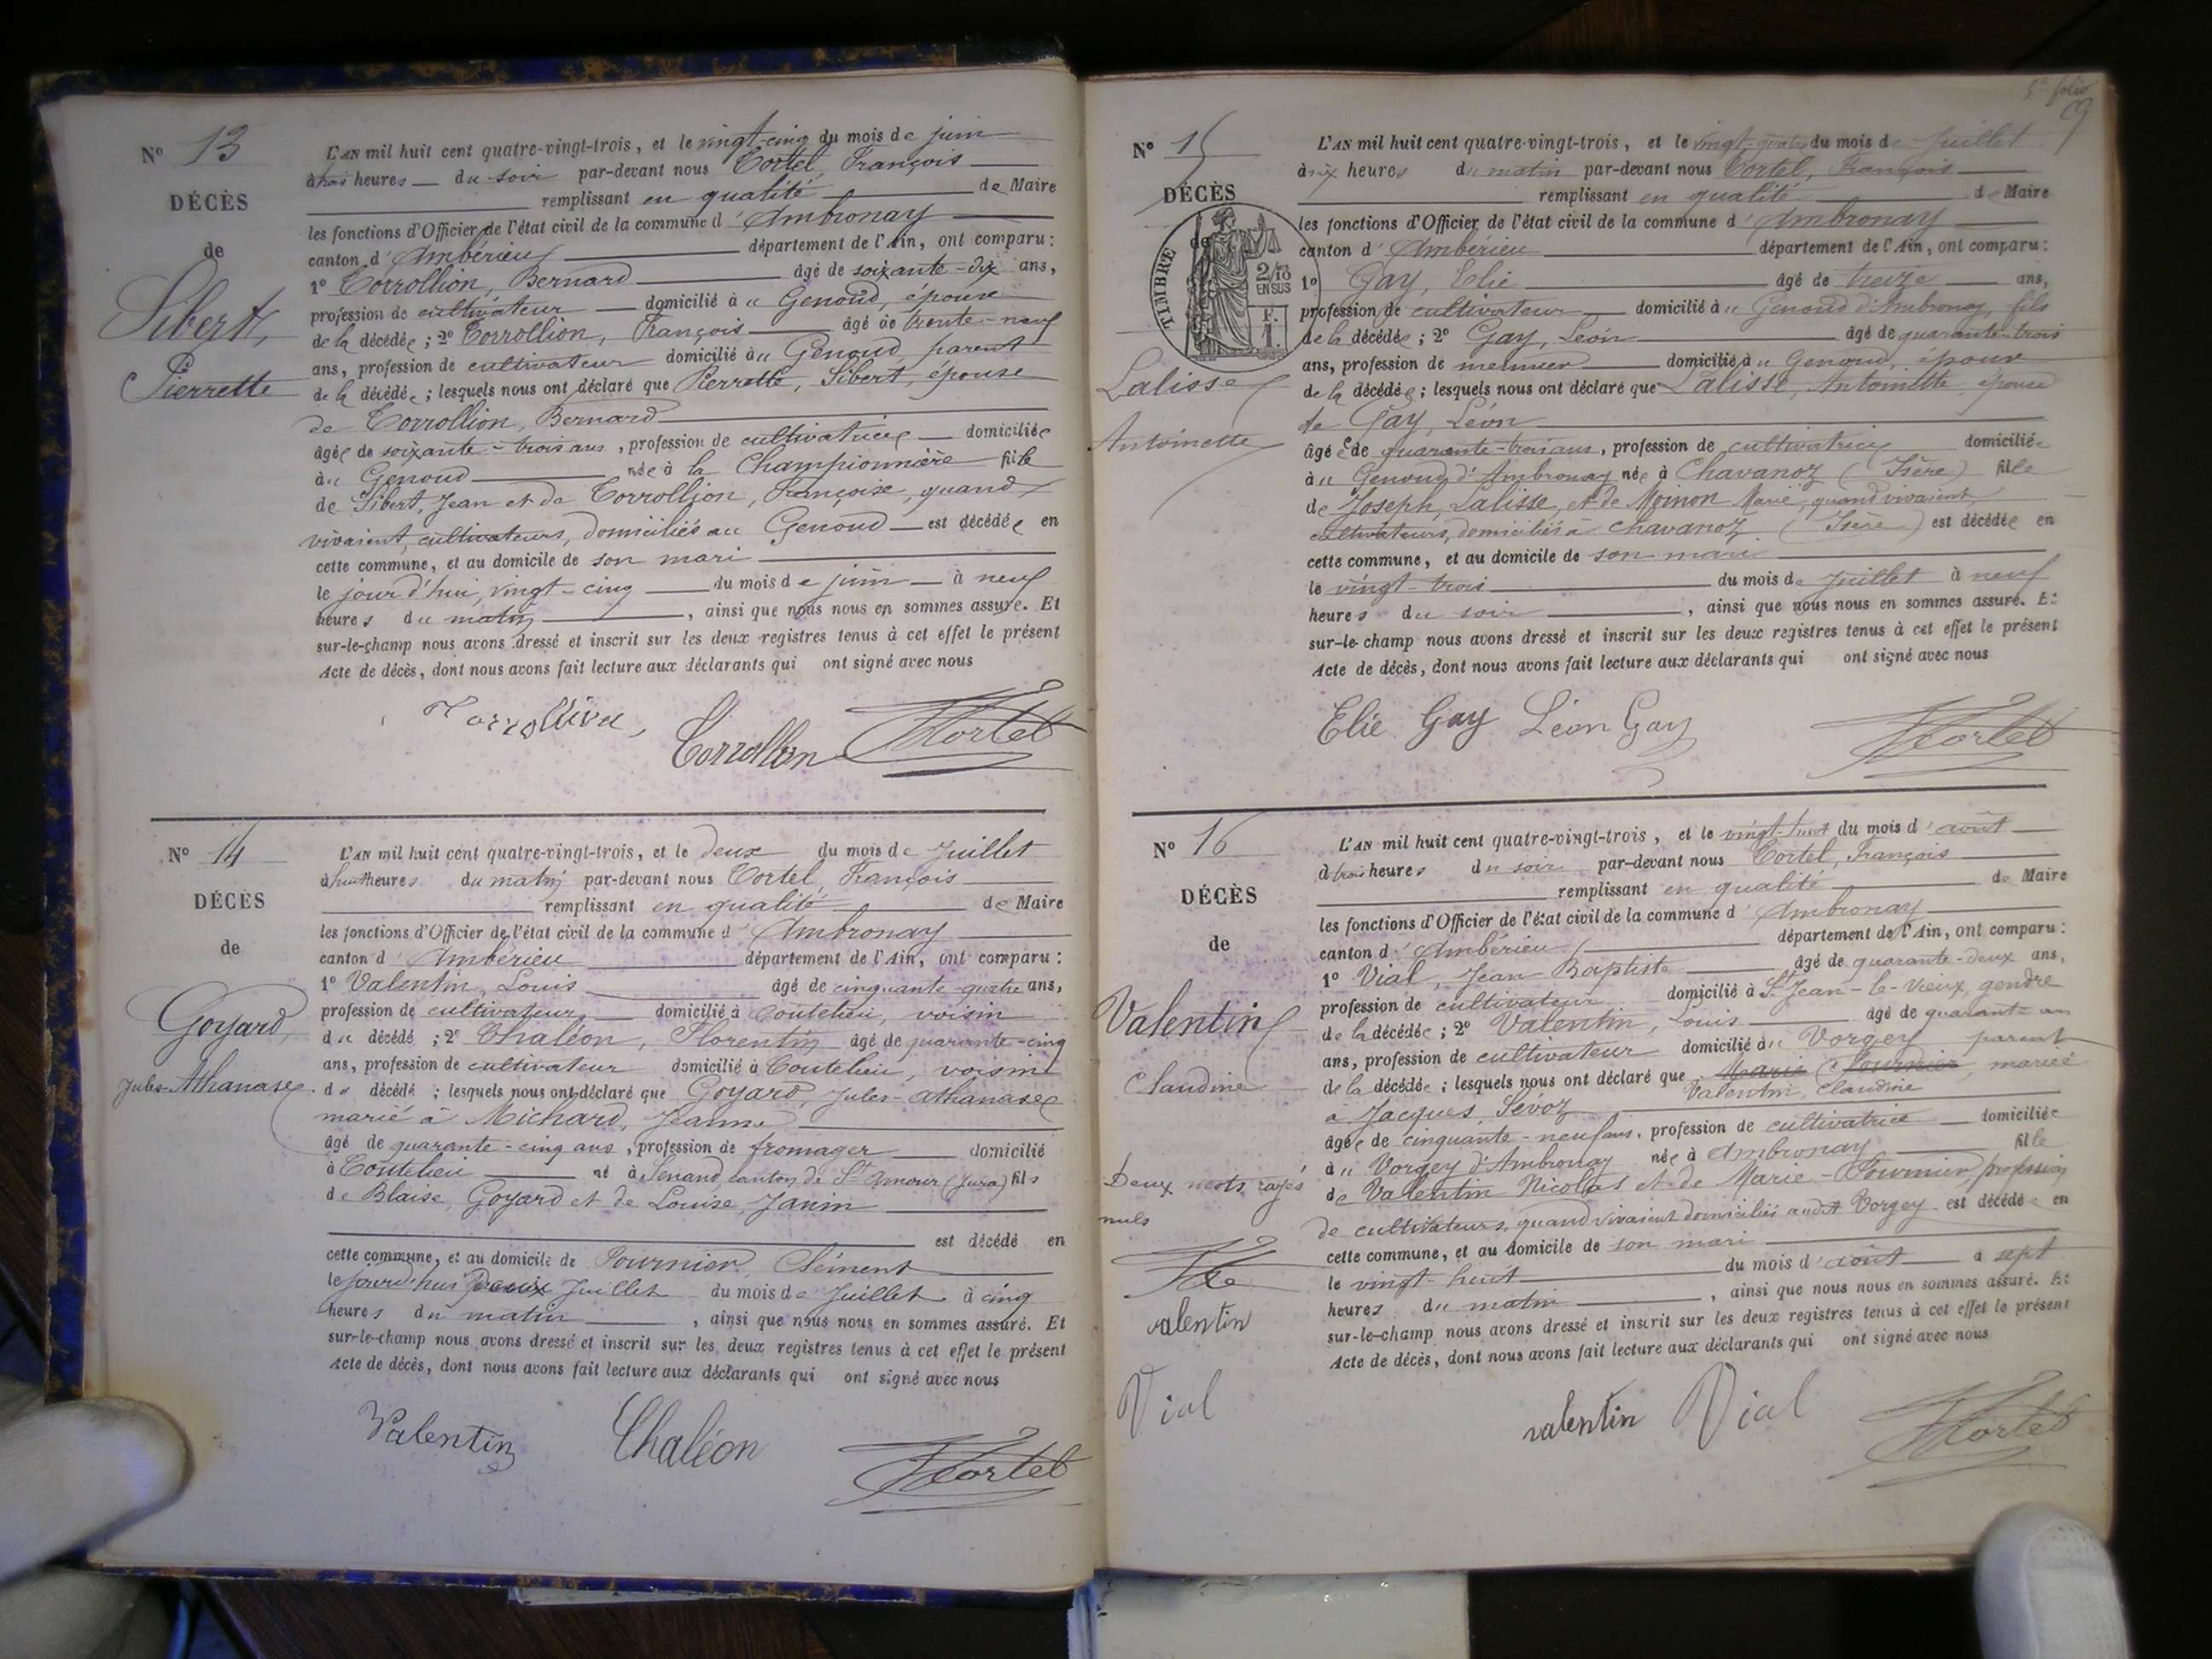 N° 13
DÉCÈS
de
Sibert,
Pierrette
L'AN mil huit cent quatre-vingt-trois, et le vingt-cinq du mois de juin
à trois heures du soir par-devant nous Tortel, François
remplissant en qualité de Maire
les fonctions d'Officier de l'état civil de la commune d'Ambronay
canton d'Ambérieu département de l'Ain, ont comparu :
1° Corrollion, Bernard âgé de soixante-dix ans,
profession de cultivateur domicilié à u Genoud, époux
de la décédée ; 2° Corrollion, François âgé de trente-neuf
ans, profession de cultivateur domicilié à u Genoud, parent
de la décédée ; lesquels nous ont déclaré que Pierrette, Sibert, épouse
de Corrollion, Bernard
âgée de soixante-trois ans, profession de cultivatrice domiciliée
à u Genoud née à la Championnière fille
de Sibert, Jean et de Corrollion, Françoise, quand
vivaient, cultivateurs, domiciliés au Genoud est décédée en
cette commune, et au domicile de son mari
le jour d'hui, vingt-cinq du mois de juin à neuf
heures du matin, ainsi que nous nous en sommes assuré. Et
sur-le-champ nous avons dressé et inscrit sur les deux registres tenus à cet effet le présent
Acte de décès, dont nous avons fait lecture aux déclarants qui ont signé avec nous
Corrollion Tortel
N° 14
DÉCÈS
de
Goyard,
Jules-Athanase
L'AN mil huit cent quatre-vingt-trois, et le deux du mois de Juillet
à huit heures du matin par-devant nous Tortel, François
remplissant en qualité de Maire
les fonctions d'Officier de l'état civil de la commune d'Ambronay
canton d'Ambérieu département de l'Ain, ont comparu :
1° Valentin, Louis âgé de cinquante-quatre ans,
profession de cultivateur domicilié à Coutelieu, voisin
du décédé ; 2° Chaléon, Florentin âgé de quarante-cinq
ans, profession de cultivateur domicilié à Coutelieu, voisin
du décédé ; lesquels nous ont déclaré que Goyard, Jules-Athanase
marié à Michard, Jeanne
âgé de quarante-cinq ans, profession de fromager domicilié
à Coutelieu né à Senaud, canton de St Amour (Jura) fils
de Blaise, Goyard et de Louise, Janin
est décédé en
cette commune, et au domicile de Fournier, Clément
le jourd'hui deux Juillet du mois de Juillet à cinq
heures du matin, ainsi que nous nous en sommes assuré. Et
sur-le-champ nous avons dressé et inscrit sur les deux registres tenus à cet effet le présent
Acte de décès, dont nous avons fait lecture aux déclarants qui ont signé avec nous
Valentin Chaléon Tortel
5e folio
N° 15
DÉCÈS
de
TIMBRE
2/10 EN SUS
F. 1.
Lalisse
Antoinette
L'AN mil huit cent quatre-vingt-trois, et le vingt-quatre du mois de Juillet
à six heures du matin par-devant nous Tortel, François
remplissant en qualité de Maire
les fonctions d'Officier de l'état civil de la commune d'Ambronay
canton d'Ambérieu département de l'Ain, ont comparu :
1° Gay, Elie âgé de treize ans,
profession de cultivateur domicilié à u Genoud d'Ambronay, fils
de la décédée ; 2° Gay, Léon âgé de quarante-trois
ans, profession de meunier domicilié à u Genoud, époux
de la décédée ; lesquels nous ont déclaré que Lalisse, Antoinette, épouse
de Gay, Léon
âgée de quarante-trois ans, profession de cultivatrice domiciliée
à u Genoud d'Ambronay née à Chavanoz (Isère) fille
de Joseph, Lalisse, et de Moinon Marie, quand vivaient,
cultivateurs, domiciliés à Chavanoz (Isère) est décédée en
cette commune, et au domicile de son mari
le vingt-trois du mois de Juillet à neuf
heures du soir, ainsi que nous nous en sommes assuré. Et
sur-le-champ nous avons dressé et inscrit sur les deux registres tenus à cet effet le présent
Acte de décès, dont nous avons fait lecture aux déclarants qui ont signé avec nous
Elie Gay Léon Gay Tortel
N° 16
DÉCÈS
de
Valentin
Claudine
Deux mots rayés
nuls
valentin
Vial
L'AN mil huit cent quatre-vingt-trois, et le vingt-huit du mois d'août
à trois heures du soir par-devant nous Tortel, François
remplissant en qualité de Maire
les fonctions d'Officier de l'état civil de la commune d'Ambronay
canton d'Ambérieu département de l'Ain, ont comparu :
1° Vial, Jean-Baptiste âgé de quarante-deux ans,
profession de cultivateur domicilié à St Jean-le-Vieux, gendre
de la décédée ; 2° Valentin, Louis âgé de quarante an
ans, profession de cultivateur domicilié à u Vorgey parent
de la décédée ; lesquels nous ont déclaré que Marie Fournier mariée
Valentin, Claudine
à Jacques, Sévoz
âgée de cinquante-neuf ans, profession de cultivatrice domiciliée
à u Vorgey d'Ambronay née à Ambronay fille
de Valentin Nicolas et de Marie-Fournier, profession
de cultivateurs, quand vivaient domiciliés audit Vorgey est décédée en
cette commune, et au domicile de son mari
le vingt-huit du mois d'août à sept
heures du matin, ainsi que nous nous en sommes assuré. Et
sur-le-champ nous avons dressé et inscrit sur les deux registres tenus à cet effet le présent
Acte de décès, dont nous avons fait lecture aux déclarants qui ont signé avec nous
valentin Vial Tortel